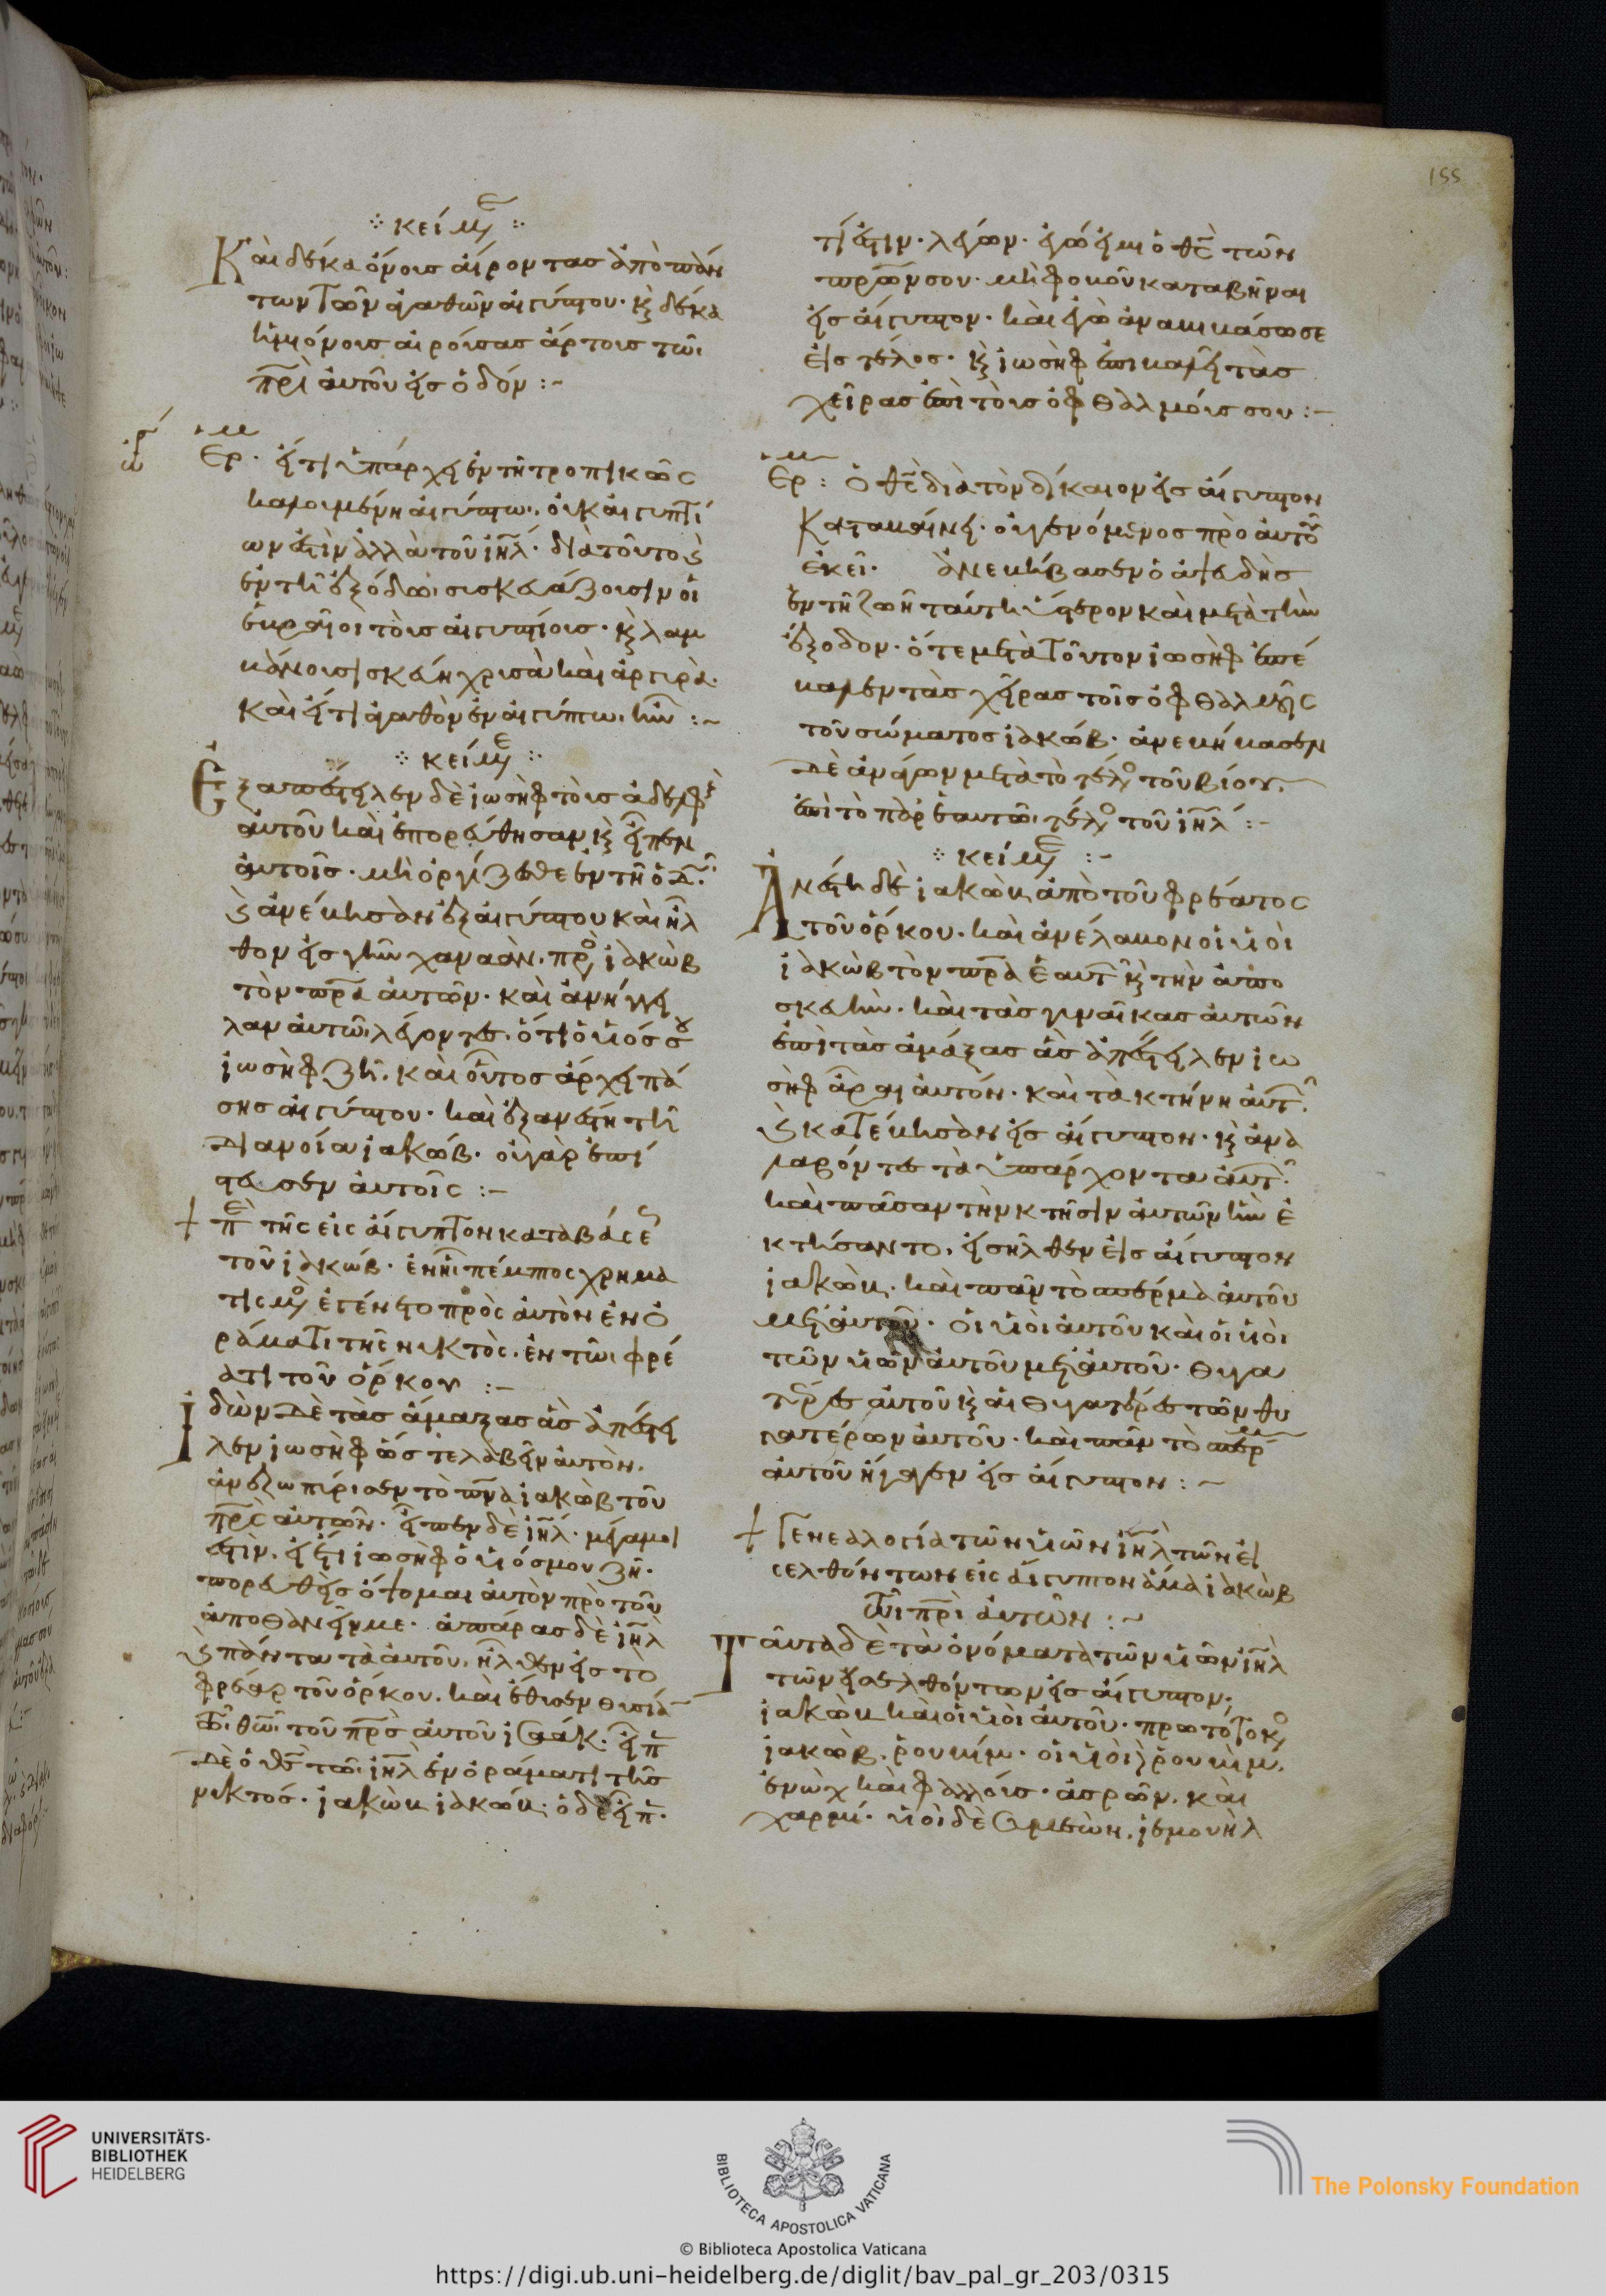 155
κείμε
Καὶ δέκα ὄνους αἴροντας ἀπὸ πάν
των τῶν ἀγαθῶν αἰγύπτου· κ δέκα
ἡμιόνους αἰρούσας ἄρτους τῶι
πρι αὐτοῦ εἰς ὁδόν :~
ὡρ
Ερμ· εἴ τι ὑπάρχει ἐν τῆ τροπικῶς
καλουμένη αἰγύπτω· οὐκ αἰγυπτί
ων ἐστὶν ἀλλὰ τοῦ ιηλ· διατοῦτο
ἐν τῆ ἐξόδωι συσκευάζουσιν οἱ
ἑβραῖοι τοὺς αἰγυπτίους· κ λαμ
βάνουσι σκεύη χρυσὰ καὶ ἀργυρὰ·
καὶ εἴ τι ἀγαθὸν ἐν αἰγύπτω ἦν :~
κείμε
Ἐξαπέστειλεν δὲ ἰωσὴφ τοὺς ἀδελφ
αὐτοῦ καὶ ἐπορεύθησαν κ εἶπεν
αὐτοῖς· μὴ ὀργίζεσθε ἐν τῆ ὁδ·
κ ἀνέβησαν ἐξ αἰγύπτου καὶ ἦλ
θον εἰς γῆν χαναὰν· πρὸ ἰακὼβ
τὸν πρα αὐτῶν· καὶ ἀνήγγει
λαν αὐτῶι λέγοντες· ὅτι ὁ υἱός σου
ἰωσὴφ ζῆ· καὶ οὗτος ἄρχει πά
σης αἰγύπτου· καὶ ἐξανέστη τῆ
διανοία ἰακώβ· οὐ γὰρ ἐπί
στευσεν αὐτοῖς :~
πε τῆς εἰς αἴγυπτον καταβάσε
τοῦ ἰακώβ· ἐν ἧι πέμπτος χρημα
τισμο ἐγένετο πρὸς αὐτὸν ἐν ὁ
ράματι τῆς νυκτὸς· ἐν τῶι φρέ
ατι τοῦ ὅρκου :~
Ἰδὼν δὲ τὰς ἁμάξας ἃς ἀπέστει
λεν ἰωσὴφ ὥστε λαβεῖν αὐτὸν·
ἀνεζωπύρισεν τὸ πνα ἰακὼβ τοῦ
πρς αὐτῶν· εἶπεν δὲ ιηλ· μέγα μοι
ἐστὶν· εἰ ἔτι ἰωσὴφ ὁ υἱός μου ζῆ·
πορευθεὶς ὄψομαι αὐτὸν πρὸ τοῦ
ἀποθανεῖν με· ἀπάρας δὲ ιηλ
κ πάντα τὰ αὐτοῦ· ἦλθεν εἰς τὸ
φρέαρ τοῦ ὅρκου· καὶ ἔθυσεν θυσία
τῶι θωι τοῦ πρς αὐτοῦ ἰσαάκ· εἶπ
δὲ ὁ θς τῶι ιηλ ἐν ὁράματι τῆς
νυκτός· ἰακὼβ ἰακώβ· ὁ δὲ εἶπ·
τί ἐστιν· λέγων· ἐγώ εἰμι ὁ θς τῶν
πρων σου· μὴ φοβοῦ καταβῆναι
εἰς αἴγυπτον· καὶ ἐγὼ ἀναβιβάσω σε
εἰς τέλος· κ ἰωσὴφ ἐπιβαλεῖ τὰς
χεῖρας ἐπὶ τοὺς ὀφθαλμούς σου :~
Ερμ: ὁ θς διὰ τὸν δίκαιον εἰς αἴγυπτον
καταβαίνει· ὁ γενόμενος πρὸ αὐτοῦ
ἐκεῖ· ἀνεβίβασεν ὁ ἀψευδὴς
ἐν τῆ ζωῆ ταύτη ὕστερον καὶ μετὰ τὴν
ἔξοδον· ὅτε μετὰ τοῦ τὸν ἰωσὴφ ἐπέ
βαλεν τὰς χεῖρας τοῖς ὀφθαλμοῖς
τοῦ σώματος ἰακώβ· ἀνεβίβασεν
δὲ ἀνάγων μετὰ τὸ τέλο τοῦ βίου·
ἐπὶ τὸ παρ ἑαυτῶι τέλο τοῦ ιηλ :~
κείμε
Ἀνέστη δὲ ἰακὼβ ἀπὸ τοῦ φρέατος
τοῦ ὅρκου· καὶ ἀνέλαβον οἱ υἱοὶ
ἰακὼβ τὸν πρα ἑαυτ κ τὴν ἀπο
σκευὴν· καὶ τὰς γυναῖκας αὐτῶν
ἐπὶ τὰς ἁμάξας ἃς ἀπέστειλεν ἰω
σὴφ ἆραι αὐτόν· καὶ τὰ κτήνη αὐτ·
κ κατέβησαν εἰς αἴγυπτον· κ ἀνα
λαβόντες τὰ ὑπάρχοντα αὐτ·
καὶ πᾶσαν τὴν κτῆσιν αὐτῶν ἣν ἐ
κτήσαντο· εἰσῆλθεν εἰς αἴγυπτον
ἰακὼβ· καὶ πᾶν τὸ σπέρμα αὐτοῦ
μετ αὐτοῦ· οἱ υἱοὶ αὐτοῦ καὶ οἱ υἱοὶ
τῶν υἱῶν αὐτοῦ μετ αὐτοῦ· θυγα
τέρες αὐτοῦ κ αἱ θυγατέρες τῶν θυ
γατέρων αὐτοῦ· καὶ πᾶν τὸ σπερμ
αὐτοῦ ἤγαγεν εἰς αἴγυπτον :~
Γενεαλογία τῶν υἱῶν ιηλ τῶν εἰ
σελθόντων εἰς αἴγυπτον ἅμα ἰακὼβ
τῶι πρι αὐτῶν :~
Ταῦτα δὲ τὰ ὀνόματα τῶν υἱῶν ιηλ
τῶν εἰσελθόντων εἰς αἴγυπτον·
ἰακὼβ καὶ οἱ υἱοὶ αὐτοῦ· πρωτότοκο
ἰακώβ· ῥουβίμ· οἱ υἱοὶ ῥουβίμ·
ἐνὼχ καὶ φαλλούς· ἀσρών· καὶ
χαρμί· υἱοὶ δὲ συμεὼν· ἰεμουὴλ
UNIVERSITÄTS-
BIBLIOTHEK
HEIDELBERG
BIBLIOTECA APOSTOLICA VATICANA
The Polonsky Foundation
© Biblioteca Apostolica Vaticana
https://digi.ub.uni-heidelberg.de/diglit/bav_pal_gr_203/0315